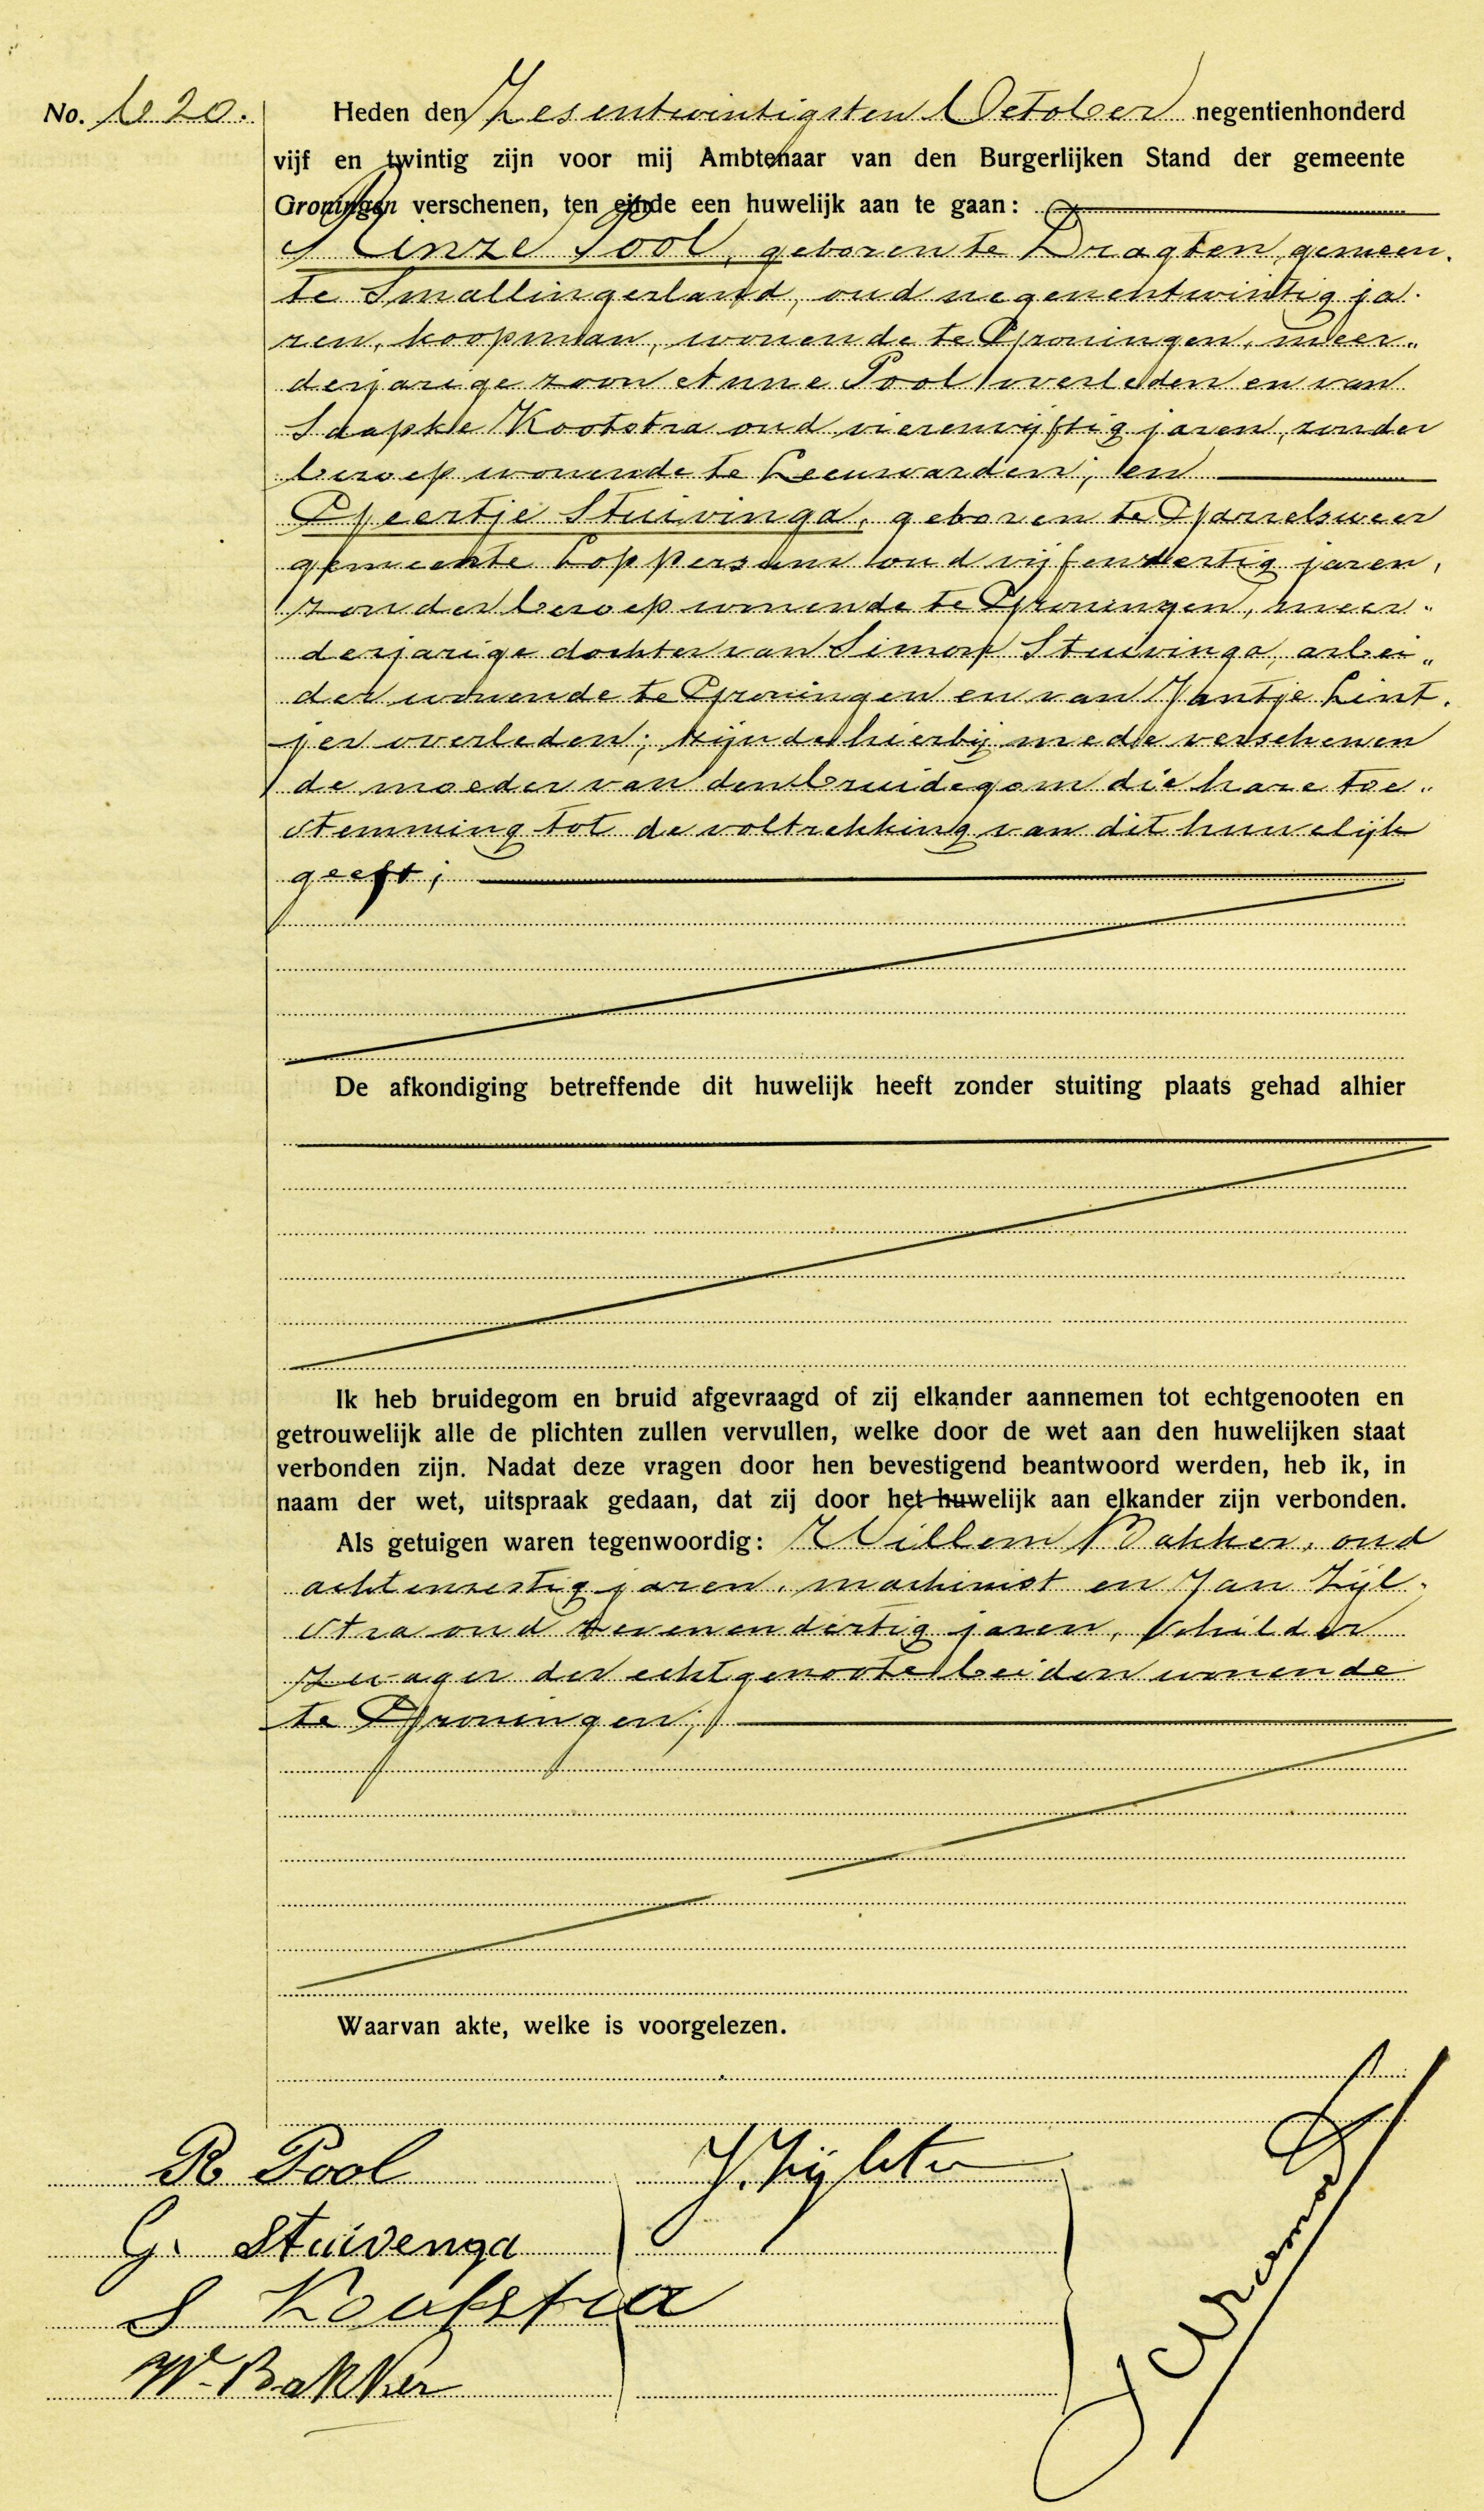 No. 620.
Heden den Zesentwintigsten October negentienhonderd
vijf en twintig zijn voor mij Ambtenaar van den Burgerlijken Stand der gemeente
Groningen verschenen, ten einde een huwelijk aan te gaan:
Rinze Pool, geboren te Dragten, gemeen-
te Smallingerland, oud negenentwintig ja-
ren, koopman, wonende te Groningen, meer-
derjarige zoon Anne Pool overleden en van
Saapke Kootstra oud vierenvijftig jaren, zonder
beroep wonende te Leeuwarden; en
Geertje Stuivinga, geboren te Garrelsweer
gemeente Loppersum oud vijfendertig jaren,
zonder beroep wonende te Groningen, meer-
derjarige dochter van Simon Stuivinga, arbei-
der wonende te Groningen en van Jantje Lint-
jer overleden; zijnde hierbij mede verschenen
de moeder van den bruidegom die hare toe-
stemming tot de voltrekking van dit huwelijk
geeft;
De afkondiging betreffende dit huwelijk heeft zonder stuiting plaats gehad alhier
Ik heb bruidegom en bruid afgevraagd of zij elkander aannemen tot echtgenooten en
getrouwelijk alle de plichten zullen vervullen, welke door de wet aan den huwelijken staat
verbonden zijn. Nadat deze vragen door hen bevestigend beantwoord werden, heb ik, in
naam der wet, uitspraak gedaan, dat zij door het huwelijk aan elkander zijn verbonden.
Als getuigen waren tegenwoordig: Willem Bakker, oud
achtenzestig jaren, machinist en Jan Zijl-
stra oud zevenendertig jaren, schilder
zwager der echtgenoote beiden wonende
te Groningen;
Waarvan akte, welke is voorgelezen.
R Pool
J. Zijlstra
G. Stuivenga
S Kootstra
W. Bakker